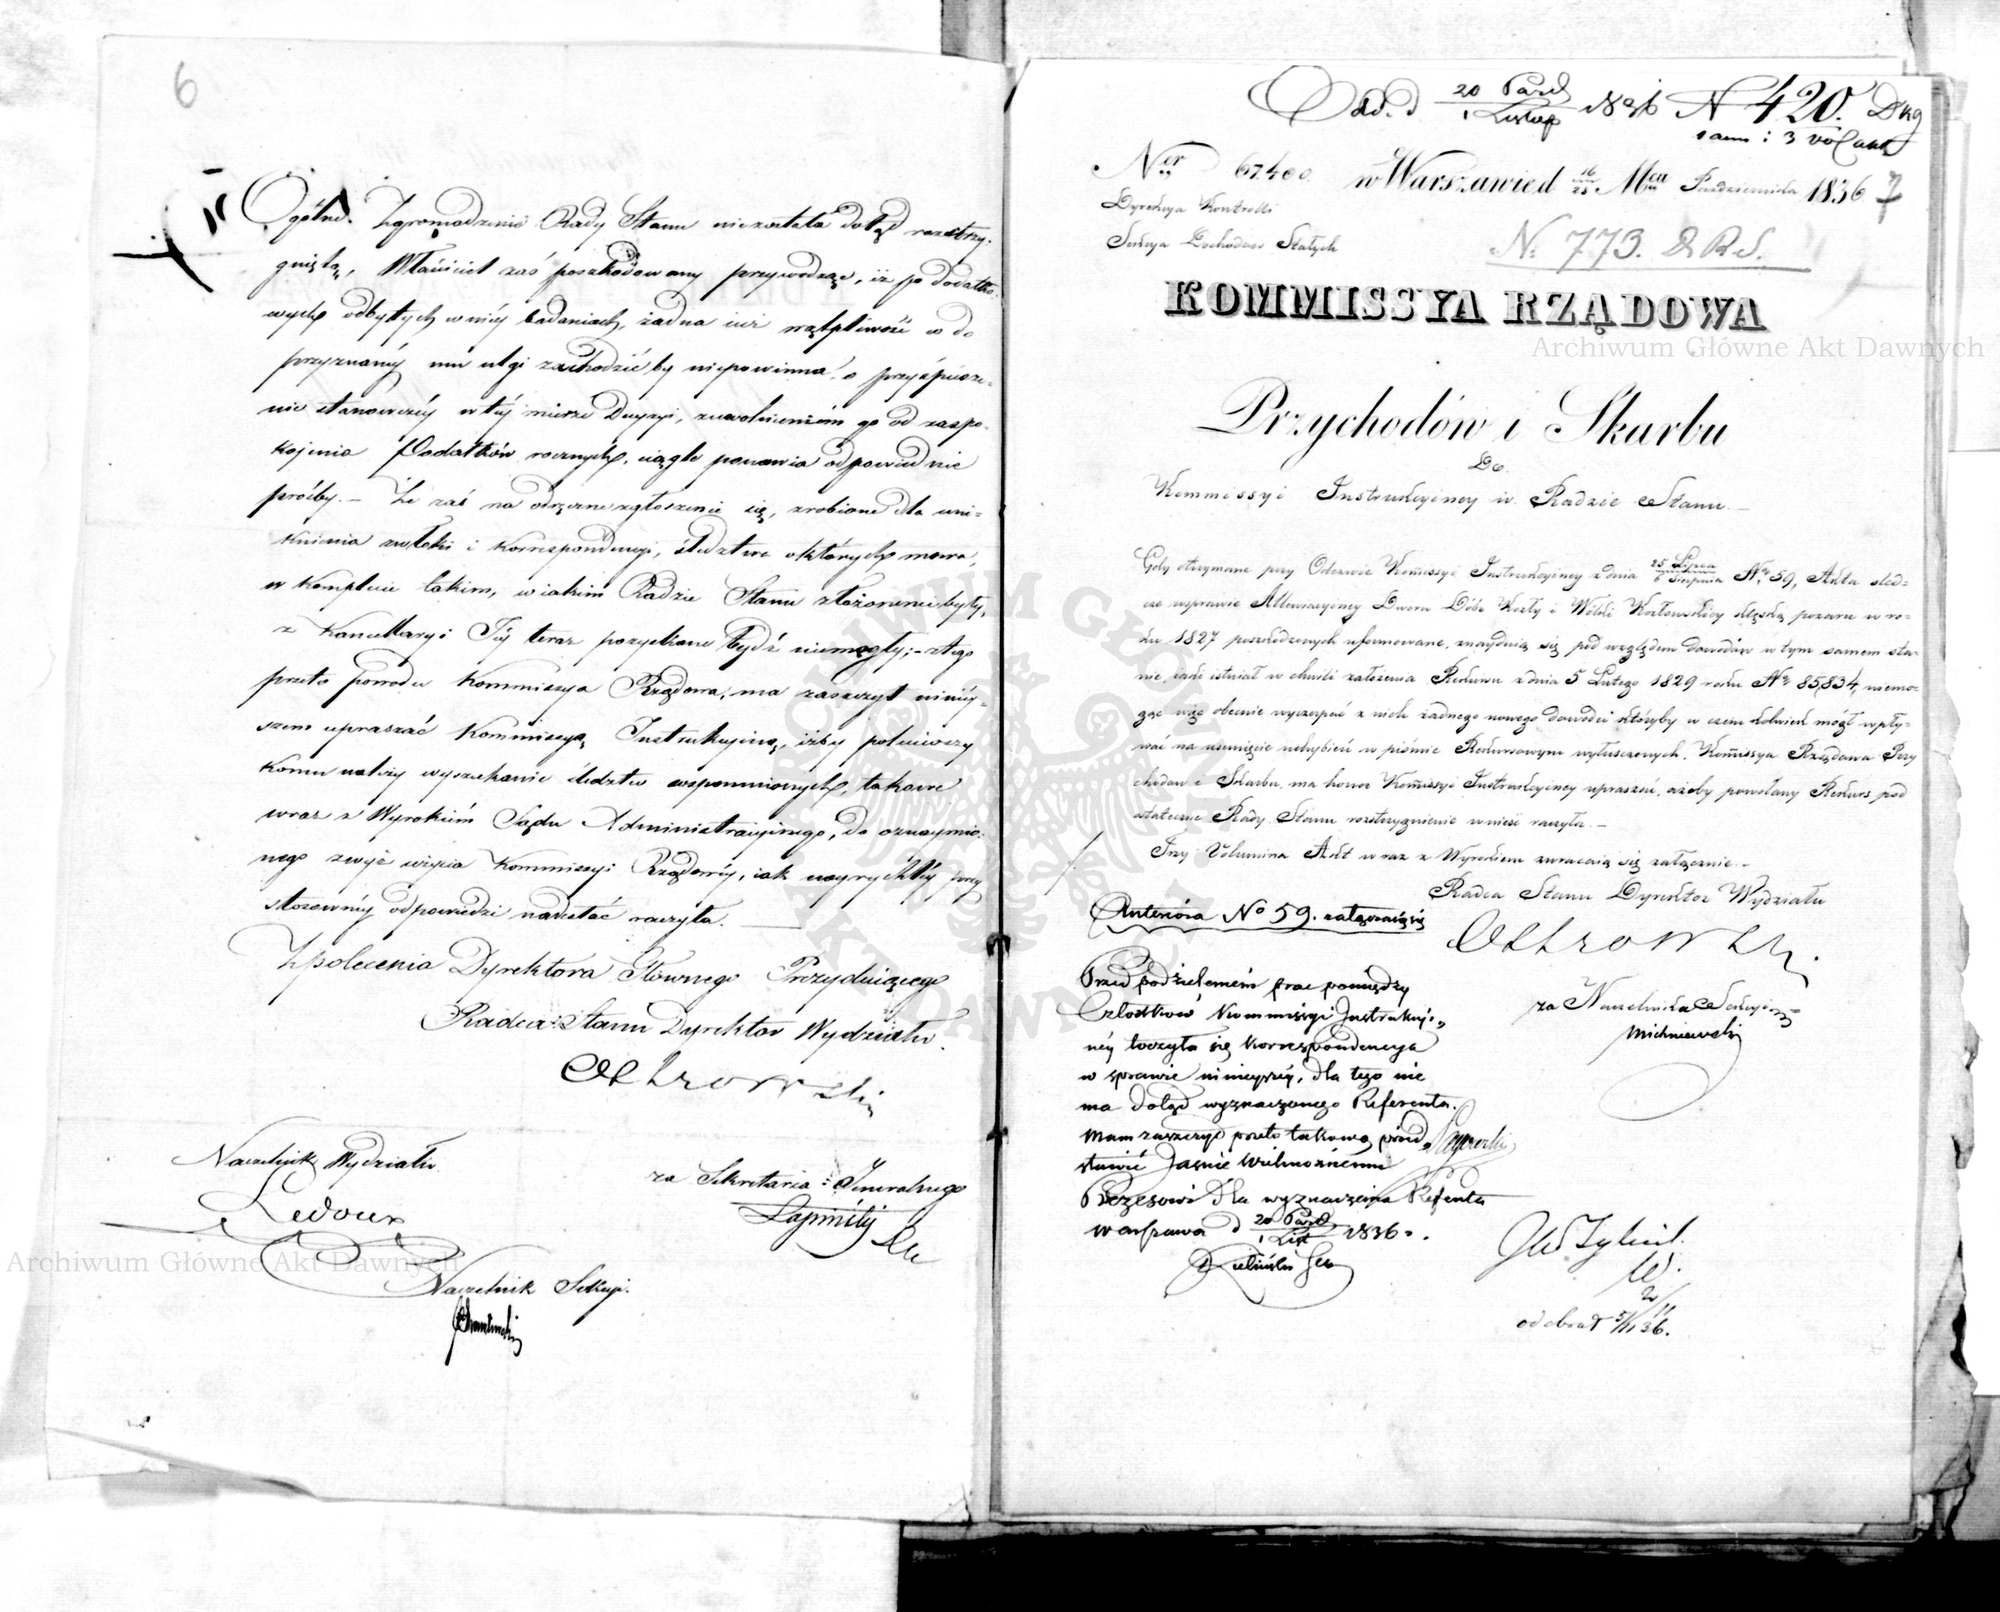 6
Ogólne Zgromadzenie Rady Stanu niezostała dotąd rozstrzy-
gniętą, Właściciel zaś poszkodowany przywodząc, iż po dodatko-
wych odbytych w niéy badaniach, żadna iuż wątpliwość co do
przyznania mu ulgi zachodzićby niepowinna, o przyśpiesze-
nie stanowczéy w téy mierze Decyzyi, z uwolnieniem go od zaspo-
kojenia Podatków rocznych, ciągle ponawia odpowiednie
prośby. – Że zaś na odręczne zgłoszenie się, zrobione dla uni-
knienia zwłoki i korrespondencyi, śledztwa o których mowa,
w komplecie takim, w iakim Radzie Stanu złożone były,
z Kancellaryi Téy teraz pozyskane bydź niemogły; – z tego
przeto powodu Kommissya Rządowa, ma zaszczyt niniéy-
szem upraszać Kommissyą Instrukcyiną, iżby poleciwszy
komu należy wyszukanie śledztw wspomnionych, takowe
wraz z Wyrokiem Sądu Administracyinego, do oznaymio-
nego zwyż użycia Kommissyi Rządowéy, iak nayrychléy przy
stosownéy odpowiedzi nadesłać raczyła. —
Z polecenia Dyrektora Głównego Prezyduiącego
Radca Stanu Dyrektor Wydziału
Ostrowski
Naczelnik Wydziału
Ledoux
za Sekretarza Jeneralnego
Naczelnik Sekcyi.
Odd. d 20 Paźd / 1 Listop 1836 N 420. Dkg
sam : 3 vol akt
Ner 67400. w Warszawie d 16/28 Mca Października 1836 7
Dyrekcya Kontrolli
Sekcya Dochodów Stałych
N: 773. & R S.
KOMMISSYA RZĄDOWA
Przychodów i Skarbu
Do
Kommissyi Instrukcyiney w Radzie Stanu. –
Gdy otrzymane przy Odezwie Kommissyi Instrukcyiney z dnia 25 Lipca / 6 Sierpnia Nr 59, Akta śled-
cze w sprawie Allewiacyiney Dworu Dóbr Kozły i Wólki Kozłowskiey klęską pożaru w ro-
ku 1827 poszkodzonych uformowane, znayduią się pod względem dowodów w tym samem sta-
nie, iaki istniał w chwili założenia Rekursu z dnia 5 Lutego 1829 roku Nr 85,834, niemo-
gąc więc obecnie wyczerpać z nich żadnego nowego dowodu któryby w czem kolwiek mógł wpły-
wać na usunięcie uchybień w piśmie Rekursowym wytuszczonych, Kommissya Rządowa Przy
chodów i Skarbu, ma honor Kommissyi Instrukcyiney upraszać, ażeby powołany Rekurs pod
stateczne Rady Stanu rozstrzygnienie wnieść raczyła. –
Trzy Volumina Akt wraz z Wyrokiem zwracaią się załącznie. –
Radca Stanu Dyrektor Wydziału
Ostrowski
za Naczelnika Sekcyi
Michniewski
Anteriora No 59. załączaią się
Przed podziełeniem prac pomiędzy
Członków Kommissyi Instrukcyi-
néy toczyła się korrespondencya
w sprawie ninieyszéy, dla tego nie
ma dotąd wyznaczonego Referenta.
Mam zaszczyt przeto takową przed-
stawić Jaśnie Wielmożnemu
Prezesowi dla wyznaczenia Referenta
Warszawa d 20 Paźd / 1 List 1836 r.
odebrał 5/11 36.
Archiwum Główne Akt Dawnych
Archiwum Główne Akt Dawnych
ARCHIWUM GŁÓWNE AKT DAWNYCH